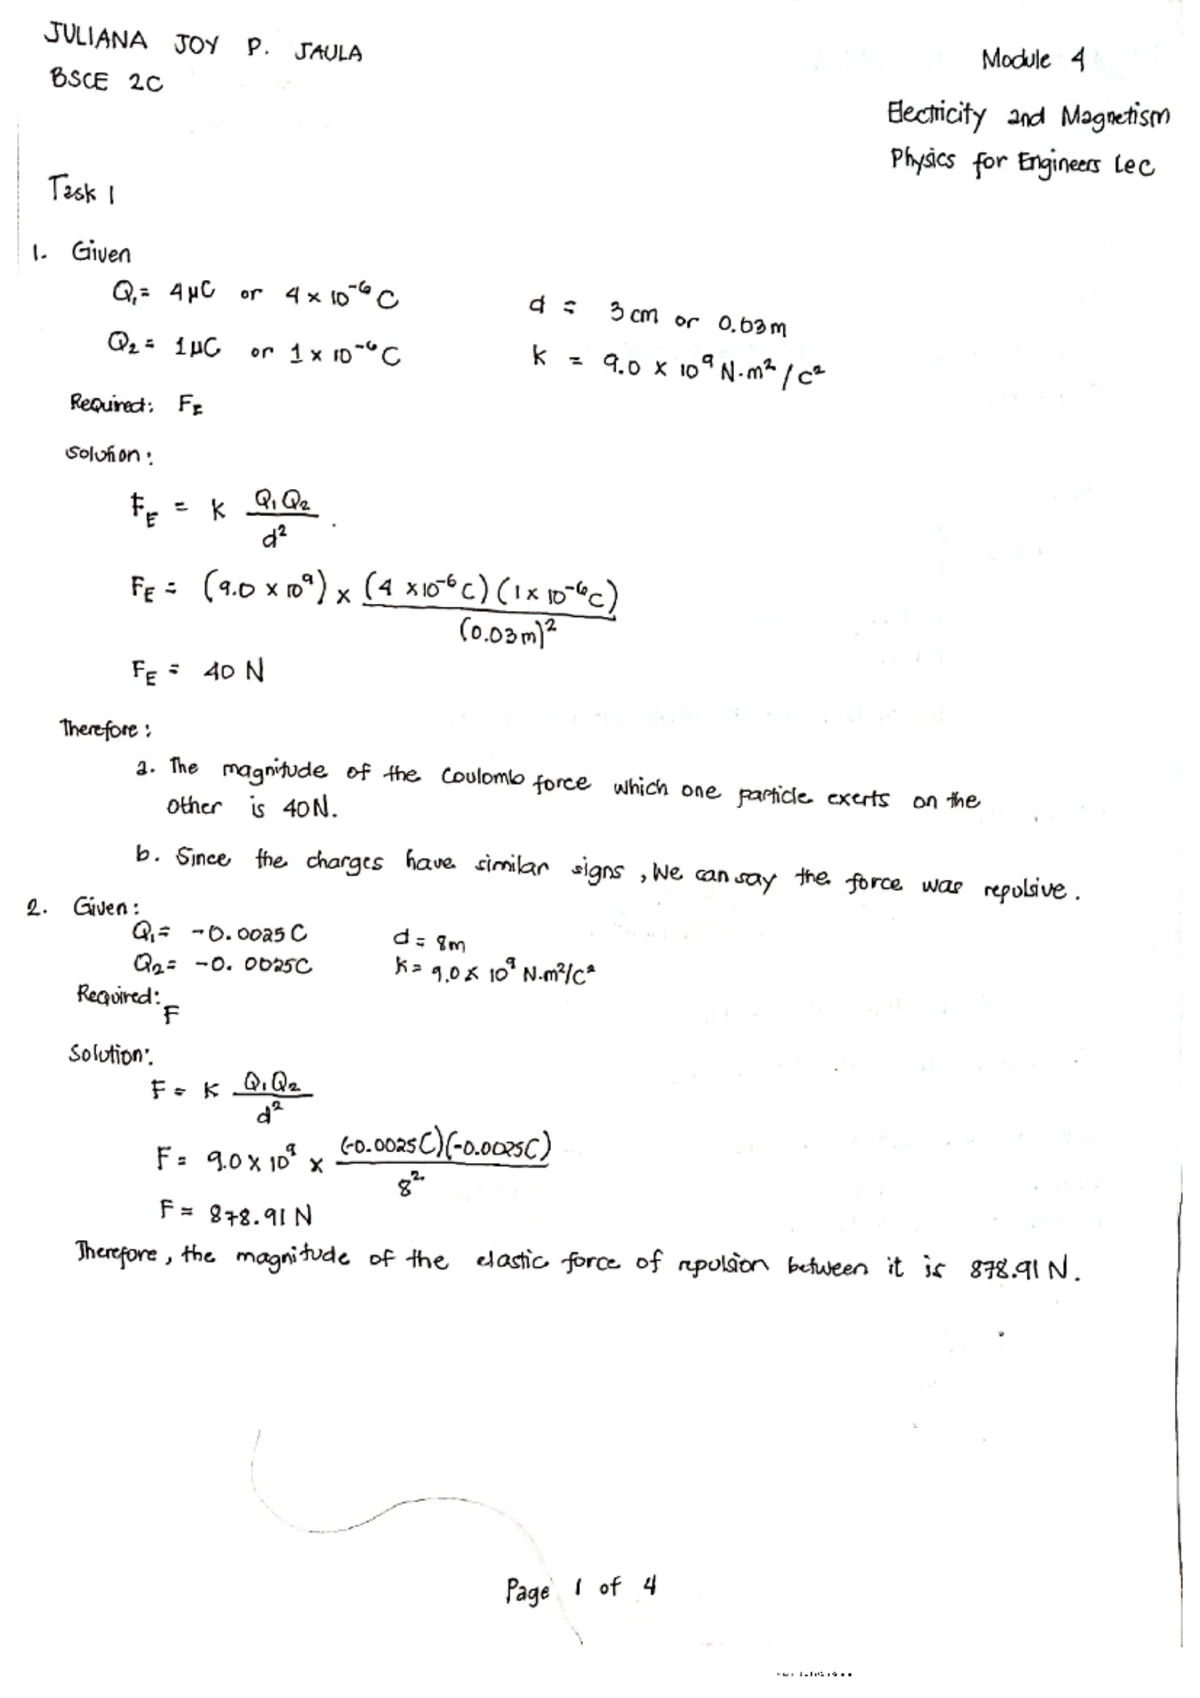 JULIANA JOY P. JAULA
BSCE 2C
Module 4
Electricity and Magnetism
Physics for Engineers Lec
Task 1
1. Given
Q₁ = 4μC or 4 × 10⁻⁶ C
d = 3 cm or 0.03m
Q₂ = 1μC or 1 × 10⁻⁶ C
k = 9.0 × 10⁹ N·m²/C²
Required: F_E
Solution:
F_E = k Q₁Q₂ / d²
F_E = (9.0 × 10⁹) × (4 × 10⁻⁶ C)(1 × 10⁻⁶ C) / (0.03m)²
F_E = 40 N
Therefore:
a. The magnitude of the Coulomb force which one particle exerts on the
other is 40N.
b. Since the charges have similar signs, We can say the force was repulsive.
2. Given:
Q₁ = -0.0025 C
d = 8m
Q₂ = -0.0025C
k = 9.0 × 10⁹ N·m²/C²
Required:
F
Solution:
F = K Q₁Q₂ / d²
F = 9.0 × 10⁹ × (-0.0025C)(-0.0025C) / 8²
F = 878.91 N
Therefore, the magnitude of the elastic force of repulsion between it is 878.91 N.
Page 1 of 4